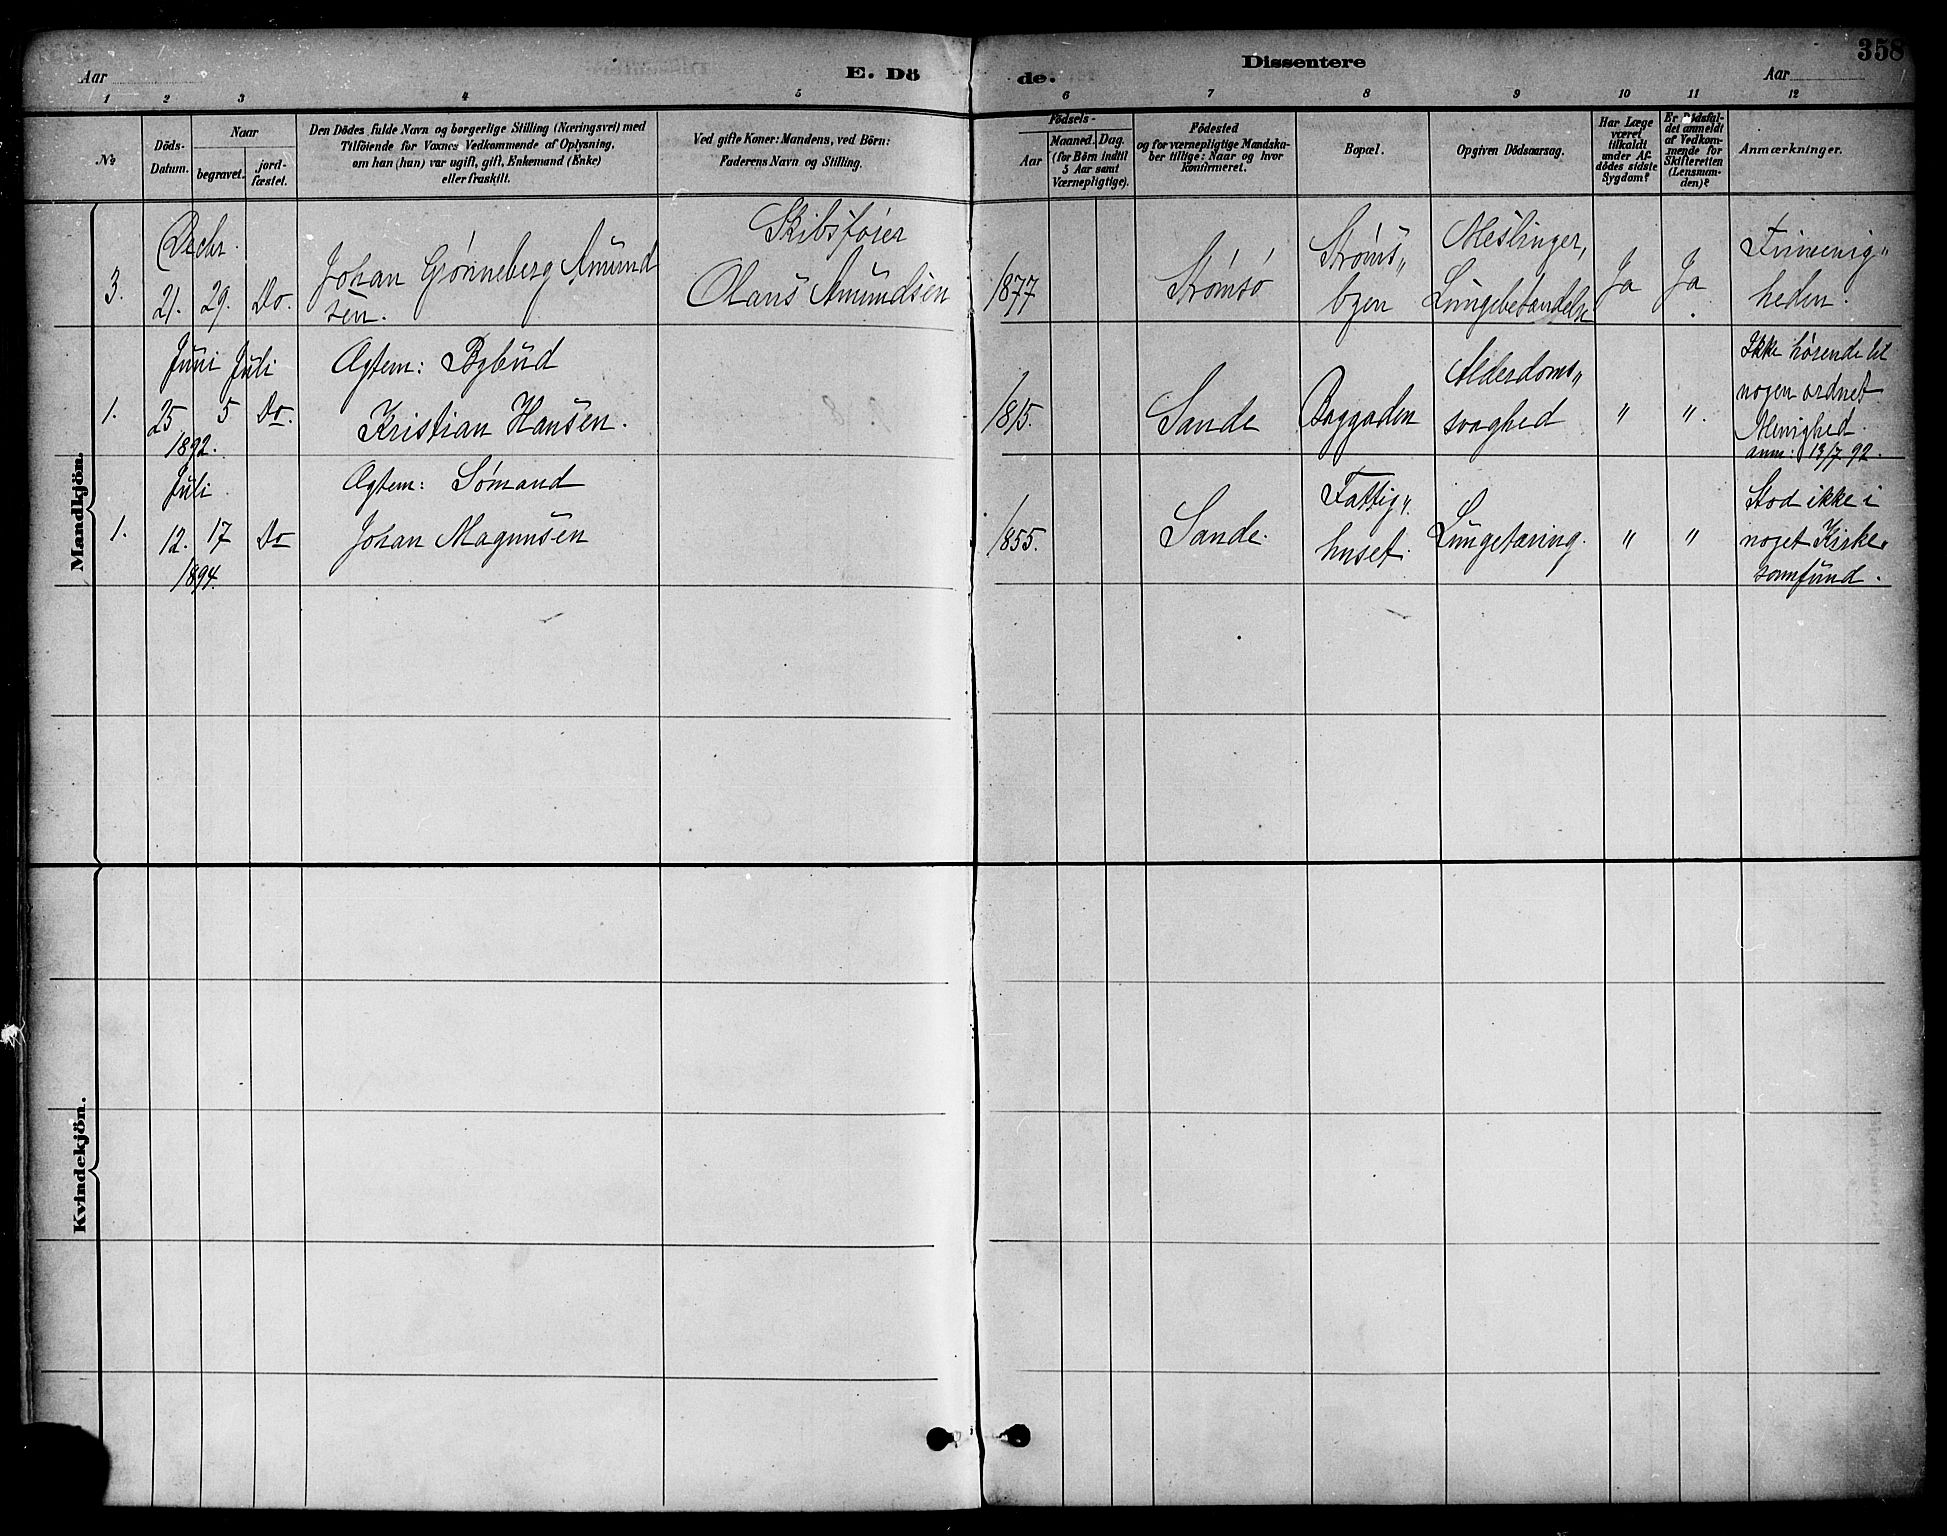 Aar
E. Dö
de.
Dissentere
Aar
358
1 2 3 4 5 6 7 8 9 10 11 12
No
Döds-
Datum.
Naar
begravet.
jord-
fæstet.
Den Dödes fulde Navn og borgerlige Stilling (Næringsvei) med
Tilföiende for Voxnes Vedkommende af Oplysning,
om han (hun) var ugift, gift, Enkemand (Enke)
eller fraskilt.
Ved gifte Koner: Mandens, ved Börn:
Faderens Navn og Stilling.
Födsels-
Aar
Maaned. Dag.
(for Börn indtil
5 Aar samt
Værnepligtige).
Födested
og for værnepligtige Mandska-
ber tillige: Naar og hvor
konfirmeret.
Bopæl.
Opgiven Dödsaarsag.
Har Læge
været
tilkaldt
under Af-
dödes sidste
Sygdom?
Er Dödsfal-
det anmeldt
af Vedkom-
mende for
Skifteretten
(Lensman-
den)?
Anmærkninger.
Mandkjön.
3.
Decbr.
21. 29. Do.
Johan Grønneberg Amund
sen.
Skibsfører
Olaus Amundsen
1877
Strømsø
Strøms„
byen
Meslinger,
Lungebetændelse
Ja
Ja.
Frimenig„
heden.
1.
Juni Juli
25 5 Do.
1892.
Ægtem: Bybud
Kristian Hansen.
1815.
Sande
Baggaden
Alderdoms„
svaghed
"
".
Ikke hørende til
nogen ordnet
Menighed.
anm. 13/7 92.
1.
Juli
12. 17 Do
1894.
Ægtem: Sømand
Johan Magnusen
1855.
Sande.
Fattig„
huset.
Lungetæring.
"
"
Stod ikke i
noget Kirke„
samfund.
Kvindekjön.